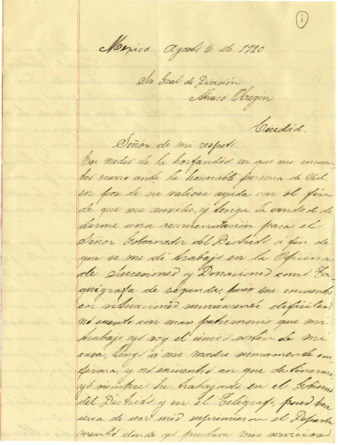 1
Mexico Agosto 6 de 1920
Sr Gral de División
Alvaro Obregon
Ciudad.
Señor de mi respeto:
En medio de la horfandad en que me encuen
tro recurro ante la honorable persona de Vd.
en pos de su valiosa ayuda con el fin
de que me auxilie, y tenga la bondad de
darme una recomendación para el
Señor Gobernador del Distrito a fin de
que se me de trabajo en la Oficina
de Sucesiones y Donaciones como Ta
quígrafa de segunda, pues me encuentro
en situaciones sumamente dificiles
no cuento con mas patrimonio que mi
trabajo, yo soy el único sostén de mi
casa, tengo a mi madre sumamente en
ferma, y no encuentro en que detenerme
yo siempre he trabajado en el Gobierno
del Distrito y en el Telégrafo, pues hace
cerca de un mes suprimieron el Departa
mento donde yo prestaba mis servicios